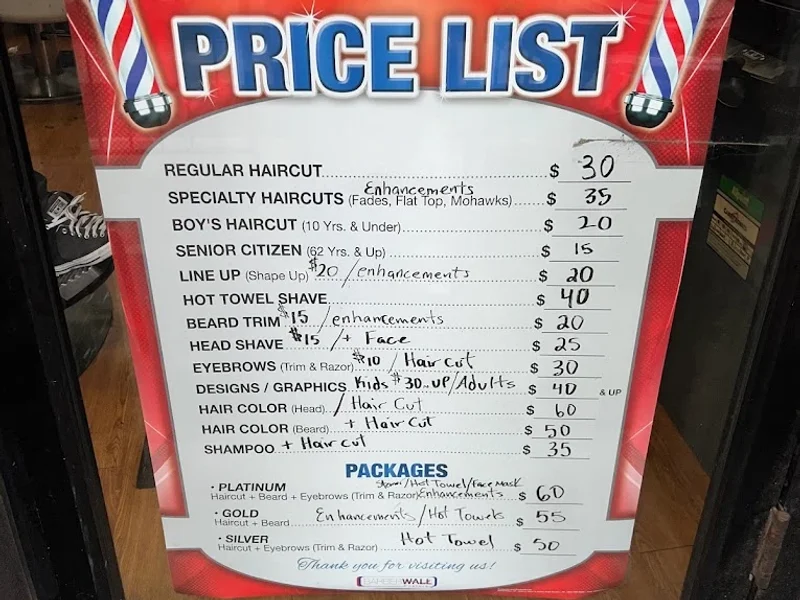 PRICE LIST
REGULAR HAIRCUT $ 30
Enhancements
SPECIALTY HAIRCUTS (Fades, Flat Top, Mohawks) $ 35
BOY'S HAIRCUT (10 Yrs. & Under) $ 20
SENIOR CITIZEN (62 Yrs. & Up) $ 15
LINE UP (Shape Up) $20 /enhancements $ 20
HOT TOWEL SHAVE $ 40
BEARD TRIM $15 /enhancements $ 20
HEAD SHAVE $15 /+ Face $ 25
EYEBROWS (Trim & Razor) $10 / Hair cut $ 30
DESIGNS / GRAPHICS Kids $30..UP/Adults $ 40 & UP
HAIR COLOR (Head) / Hair Cut $ 60
HAIR COLOR (Beard) + Hair Cut $ 50
SHAMPOO + Hair cut $ 35
PACKAGES
• PLATINUM /Hot Towel/Face Mask
Haircut + Beard + Eyebrows (Trim & Razor) Enhancements $ 60
• GOLD Enhancements/Hot Towels $ 55
Haircut + Beard
• SILVER Hot Towel $ 50
Haircut + Eyebrows (Trim & Razor)
Thank you for visiting us!
BARBERWALL